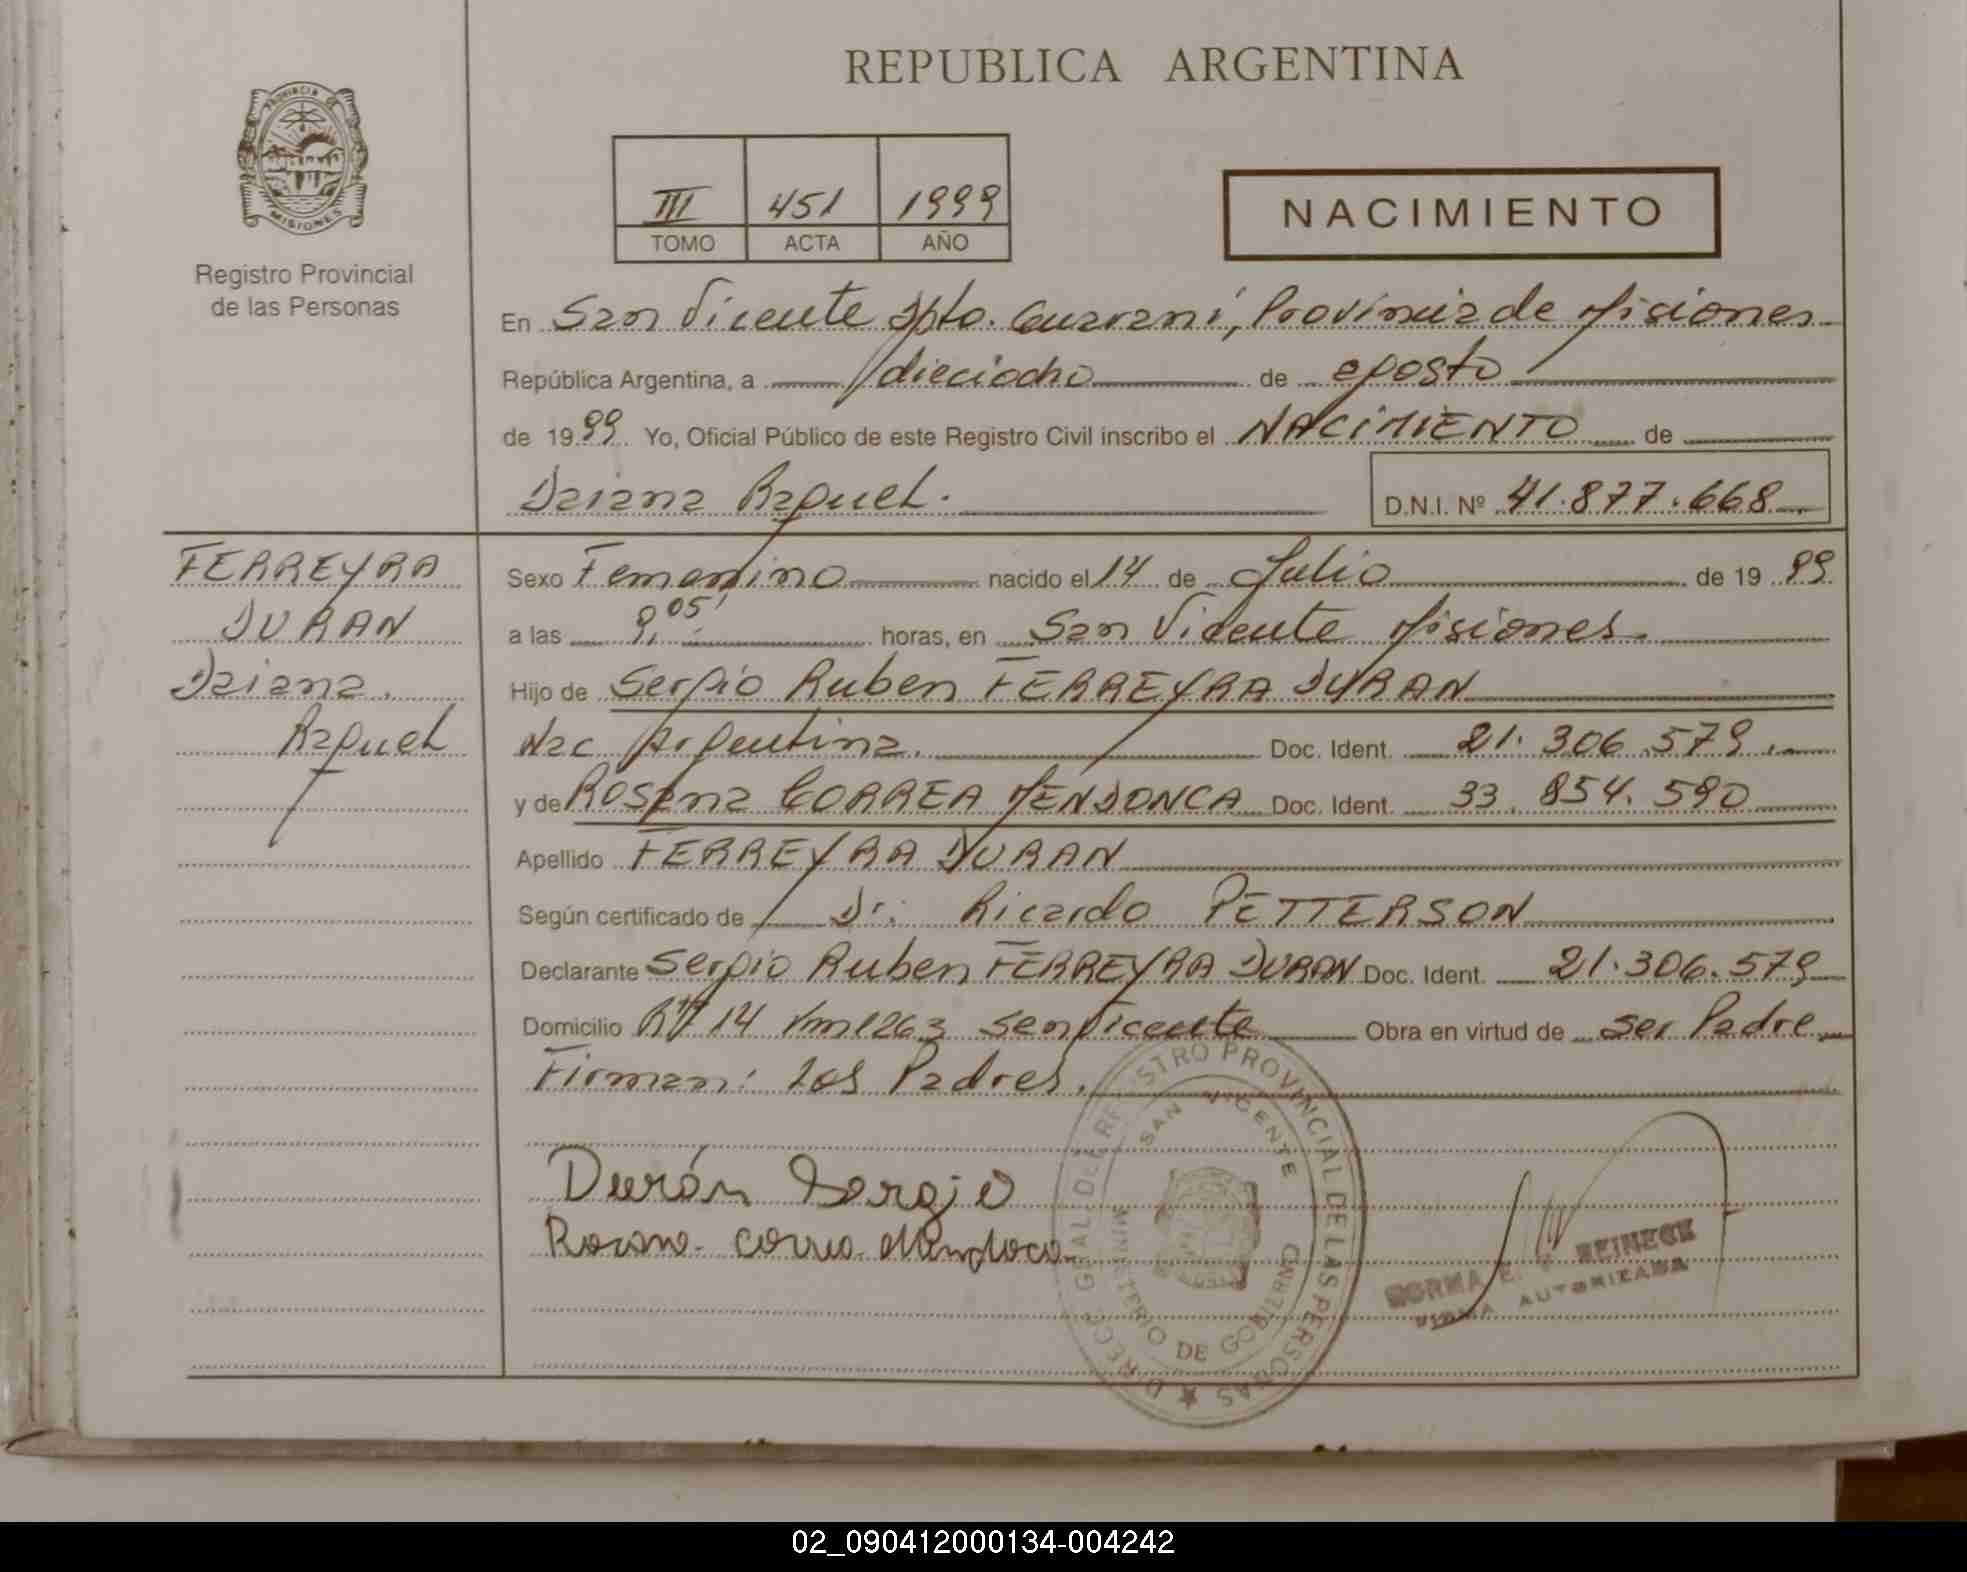 REPUBLICA ARGENTINA
PROVINCIA DE
MISIONES
Registro Provincial
de las Personas
III 451 1999
TOMO ACTA AÑO
NACIMIENTO
En San Vicente Dpto. Guarani, Provincia de Misiones
República Argentina, a dieciocho de agosto
de 1999 Yo, Oficial Público de este Registro Civil inscribo el NACIMIENTO de
Daiana Raquel. D.N.I. Nº 41.877.668
FERREYRA
DURAN
Daiana.
Raquel
Sexo Femenino nacido el 14 de Julio de 1999
a las 9,05' horas, en San Vicente Misiones.
Hijo de Sergio Ruben FERREYRA DURAN
Nac Argentina. Doc. Ident. 21.306.579.
y de Rosana CORREA MENDONCA Doc. Ident. 33.854.590
Apellido FERREYRA DURAN
Según certificado de Dr. Ricardo PETTERSON
Declarante Sergio Ruben FERREYRA DURAN Doc. Ident. 21.306.579
Domicilio RN 14 Km 1263 San Vicente Obra en virtud de ser Padre
Firman: Los Padres.
Durán Sergio
Rosana Correa
DIRECC. GRAL DEL REGISTRO PROVINCIAL DE LAS PERSONAS
SAN VICENTE
MINISTERIO DE GOBIERNO
NORMA E. REINECK
FIRMA AUTORIZADA
02_090412000134-004242